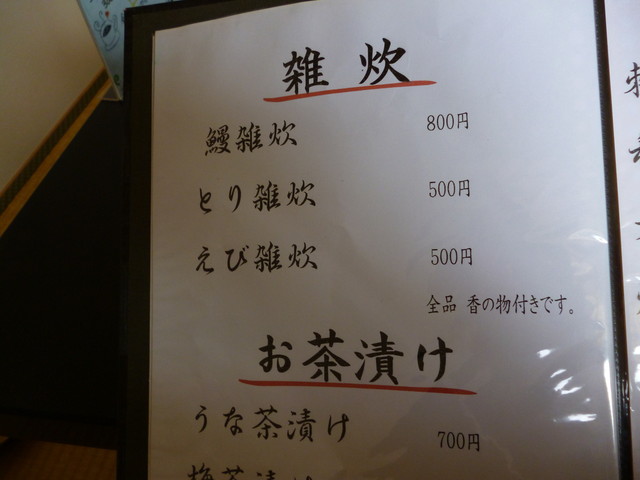 雑炊
鰻雑炊 800円
とり雑炊 500円
えび雑炊 500円
全品 香の物付きです。
お茶漬け
うな茶漬け 700円
梅茶漬け